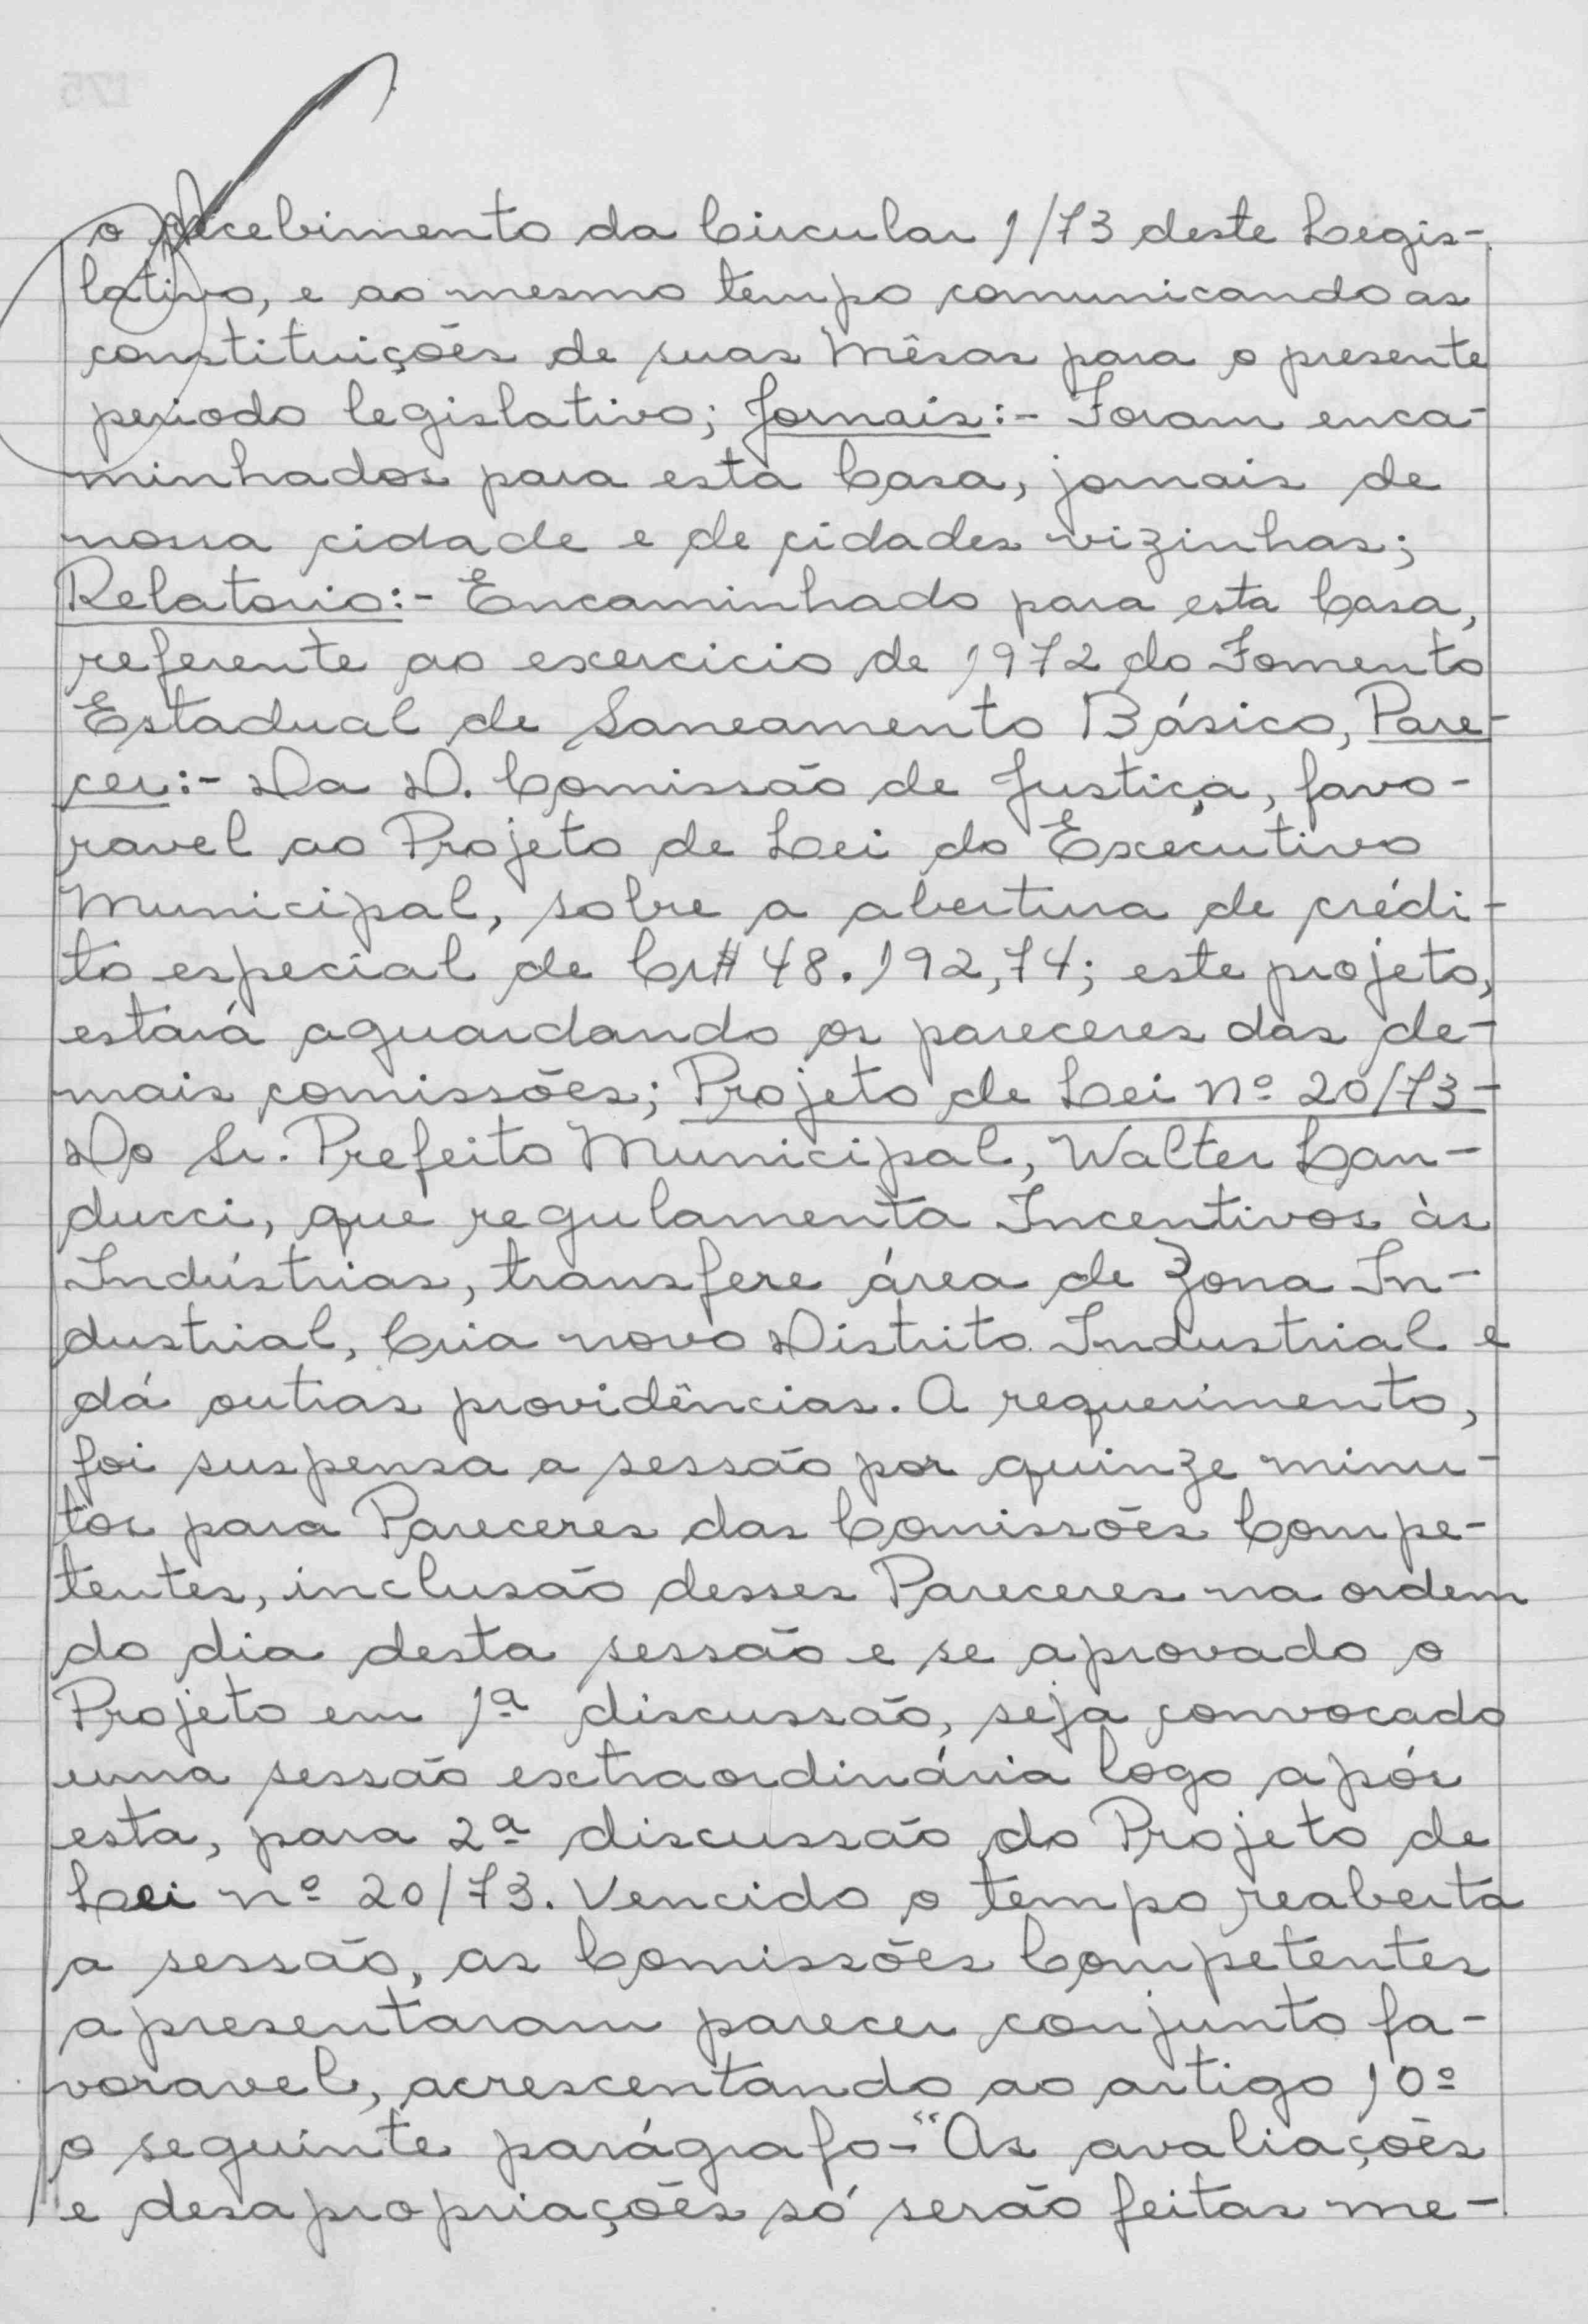 o recebimento da Circular 1/73 deste Legis-
lativo, e ao mesmo tempo comunicando as
constituições de suas Mêsas para o presente
periodo legislativo; Jornais:- Foram enca-
minhados para esta Casa, jornais de
nossa cidade e de cidades vizinhas;
Relatorio:- Encaminhado para esta Casa,
referente ao exercicio de 1972 do Fomento
Estadual de Saneamento Básico, Pare-
cer:- Da D. Comissão de Justiça, favo-
ravel ao Projeto de Lei do Executivo
Municipal, sobre a abertura de crédi-
to especial de Cr$ 48.192,74; este projeto,
estará aguardando os pareceres das de-
mais comissões; Projeto de Lei nº 20/73-
Do Sr. Prefeito Municipal, Walter Lan-
ducci, que regulamenta Incentivos às
Indústrias, transfere área de Zona In-
dustrial, Cria novo Distrito Industrial e
dá outras providências. A requerimento,
foi suspensa a sessão por quinze minu-
tos para Pareceres das Comissões Compe-
tentes, inclusão desses Pareceres na ordem
do dia desta sessão e se aprovado o
Projeto em 1ª discussão, seja convocado
uma sessão extraordinária logo após
esta, para 2ª discussão do Projeto de
Lei nº 20/73. Vencido o tempo reaberta
a sessão, as Comissões Competentes
apresentaram parecer conjunto fa-
voravel, acrescentando ao artigo 10º
o seguinte parágrafo-"As avaliações
e desapropriações só serão feitas me-